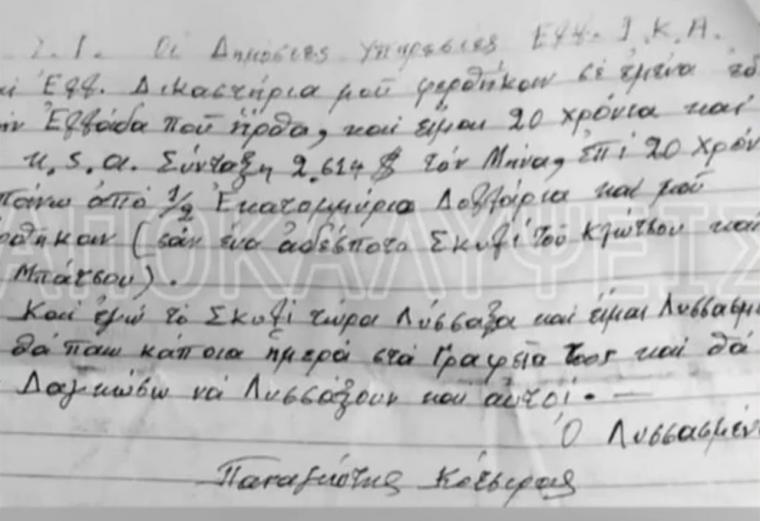 Οἱ Δημόσιες Υπηρεσιες Εφφ. Ι.Κ.Α.
Ἐφφ. Δικαστήρια μοῦ φερθήκαν σέ ἐμένα ἐδ
ήν Ἐφφάδα ποῦ ἦρθα, καί εἰμαι 20 χρόνια καί
U.S.A. Σύνταξη 2.614 $ τόν Μήνα, ἐπί 20 χρόν
πάνω ἀπό 1/2 Ἑκατομμύρια Δοφφάρια καί μοῦ
ρθηκαν (σάν ἕνα ἀδέσποτο Σκυφί τοῦ Κφώτσου καί
Μπάτσου).
Καί ἐγώ τό Σκυφί τώρα Λύσσαξα καί εἰμαι Λυσσασμ
θά παω κάποια ἡμερά στά Γραφεῖα τους καί θά
Δαγκώσω νά Λυσσάξουν και αὐτοί. —
Ὁ Λυσσασμέν
Παναγιότης Κότσιρας
ΑΠΟΚΑΛΥΨΕΙΣ